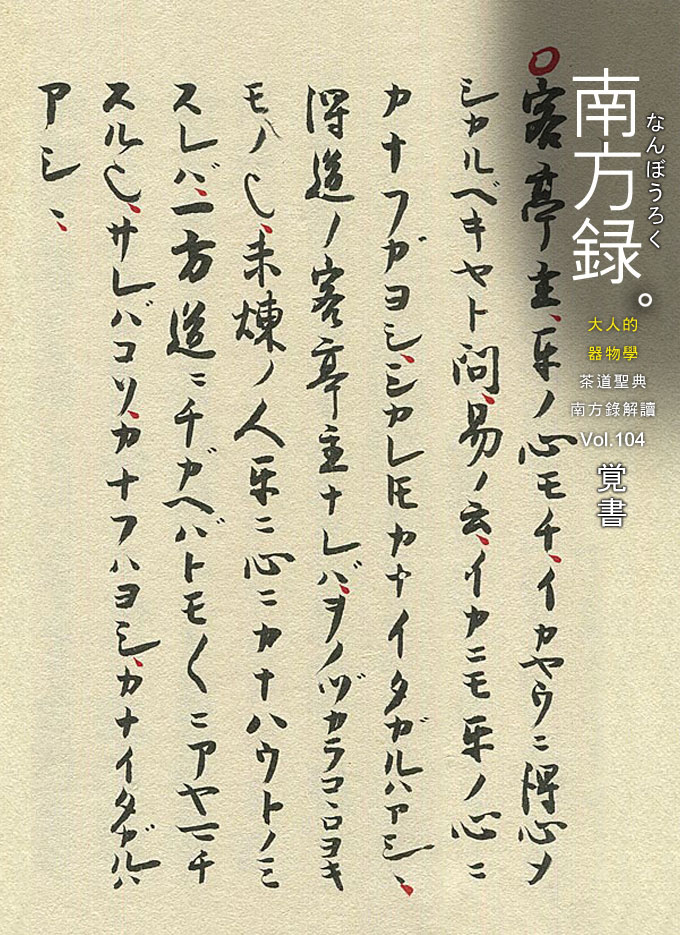 なんぼうろく
南方録。
大人的
器物學
茶道聖典
南方錄解讀
Vol.104
覚書
○客亭主、互ノ心モチ、イカヤウニ得心〆
シカルベキヤト問、易ノ云、イカニモ互ノ心ニ
カナフガヨシ、シカレ𪜈カナイタガルハアシヽ、
得道ノ客亭主ナレバ、ヲノヅカラコヽロヨキ
モノ也、未煉ノ人互ニ心ニカナハウトノミ
スレバ、一方道ニチガヘバトモ〱ニアヤマチ
スル也、サレバコソ、カナフハヨシ、カナイタガルハ
アシヽ、